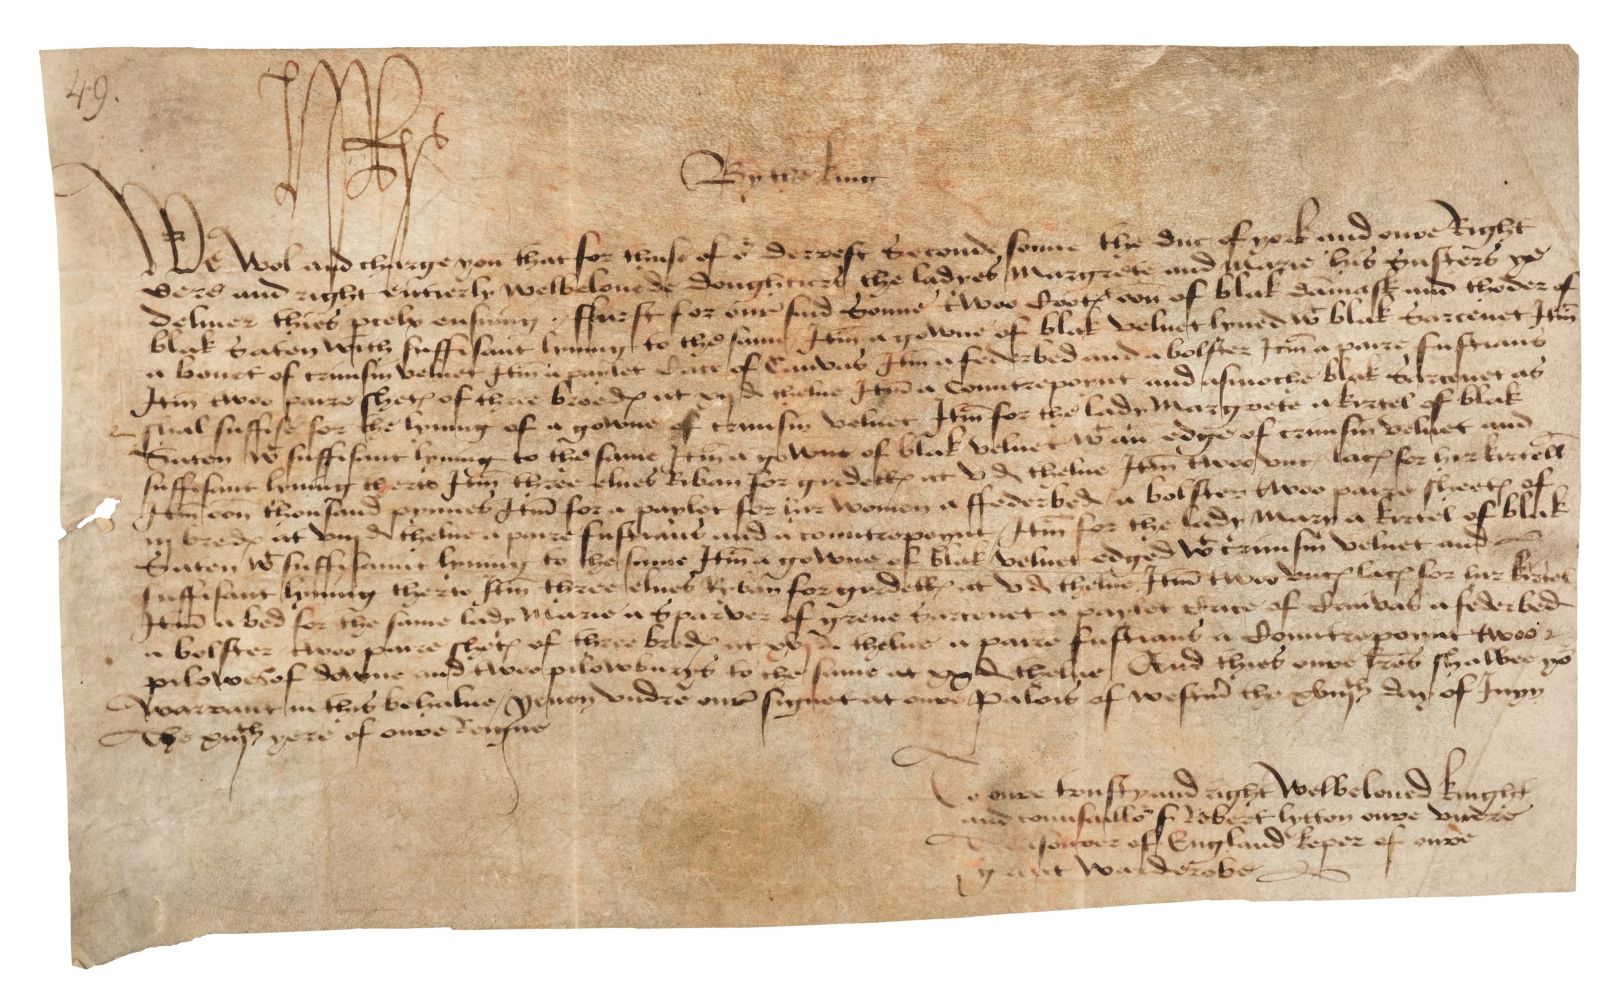 49.
HR
By the king
We Wol and charge you that for thuse of or derrest Seconde sonne the duc of york and oure Right
dere and right entierly welbelovede doughters the ladyes Margrete and Marie his Susters ye
deliver thies pcelx ensuing . ffurst for our said Sonne twoo Cootꝭ oon of blak damask and thoder of
blak Saten with suffisant lynyng to the same Itm̄ a gowne of blak velvet lyned wt blak Sarcenet Itm̄
a bonet of crimsin velvet Itm̄ a paylet Cace of Canvas Itm̄ a federbed and a bolster Itm̄ a paire fustians
Itm̄ twoo paire shetꝭ of three bredꝭ at xij d thelne Itm̄ a Countrepoynt and asmoche blak Sarcenet as
shal suffise for the lynyng of a gowne of crimsin velvet Itm̄ for the lady Margrete a kirtel of blak
Saten wt suffisant lynyng to the same Itm̄ a gowne of blak velvet wt an edge of crimsin velvet and
suffisant lynyng therto Itm̄ three elnes Riban for girdellꝭ at v d thelne Itm̄ twoo uncꝭ lacꝭ for hir kirtell
Itm̄ oon thousand pynnes Itm̄ for a paylet for hir women a ffederbed / a bolster twoo paire sheetꝭ of
iij bredꝭ at viij d thelne a paire fustians and a countrepoynt / Itm̄ for the lady Mary a kirtel of blak
Saten wt suffisaunt lynyng to the same Itm̄ a gowne of blak velvet edged wt crimsin velvet and
suffisant lynyng therto Itm̄ three elnes Ryban for girdellꝭ at v d thelne Itm̄ twoo uncꝭ lacꝭ for hir kirtel
Itm̄ a bed for the same lady Marie a Sparver of grene Sarcenet a paylet Cace of Canvas a federbed
a bolster twoo paire shetꝭ of three bredꝭ at thelne a paire fustians a Countrepoynt twoo
pilowes of downe and twoo pilowberys to the same at thelne / And thies oure lr̄es shalbee yor
warrant in this behalve / Yeven undre our signet at oure Palois of Westm̄ the day of
The yere of oure Reigne
To oure trusty and right welbeloved knight
and counsaillor sr Robert lytton oure undre
Tresourer of England keper of oure
grant warderobe